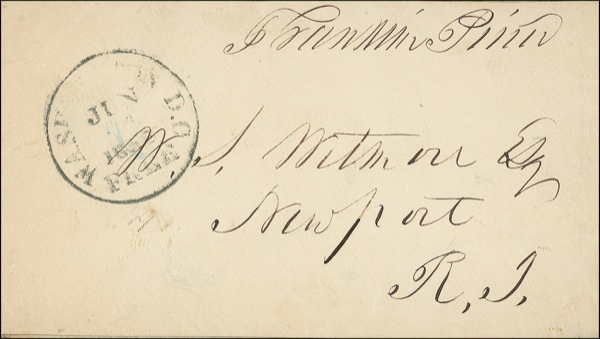 Franklin Pierce
WASH N D.C.
JUN
FREE
W. S. Wetmore Esq
Newport
R. I.